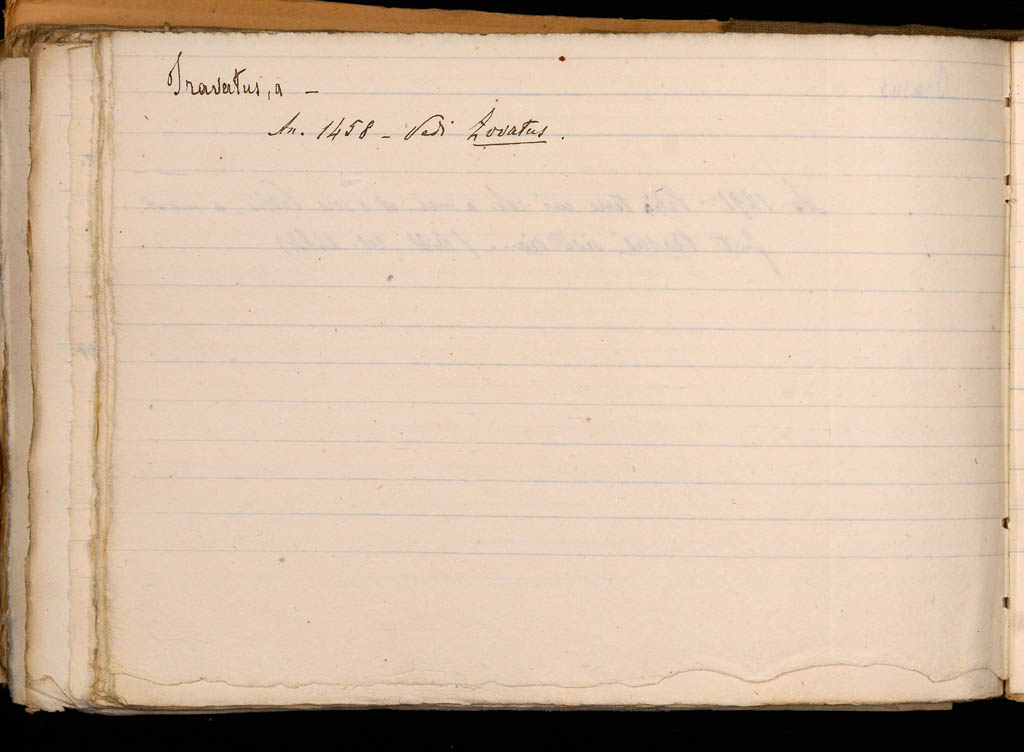 Travatus, a -
An. 1458 - Vedi Zovatus.